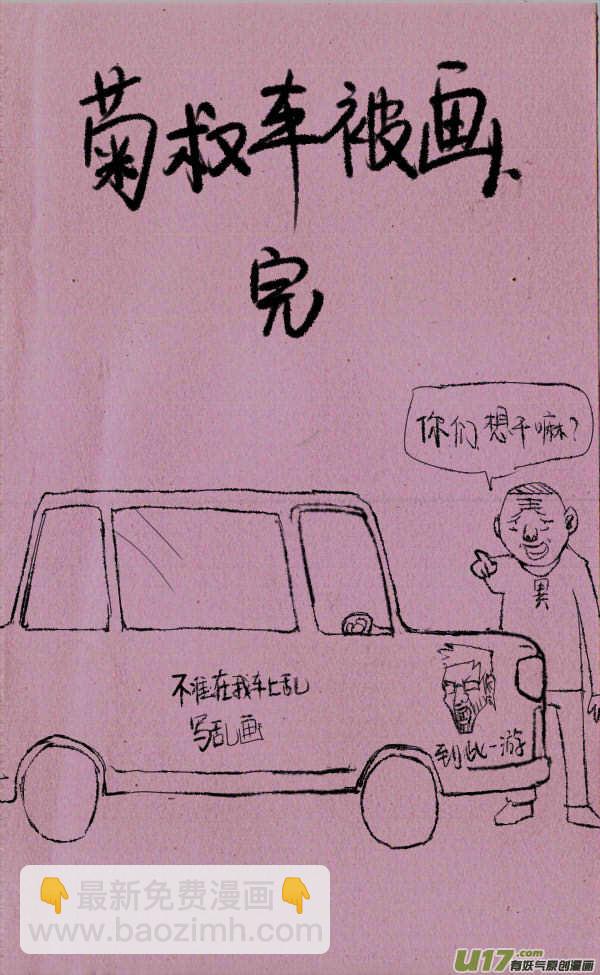 菊叔车被画
完
你们想干嘛?
男
不准在我车上乱
写乱画
到此一游
👇最新免费漫画👇
www.baozimh.com
U17.com
有妖气原创漫画